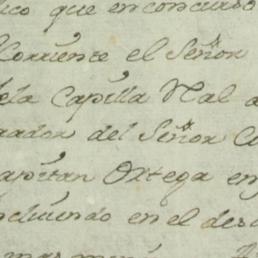 ico que en concurso
Corriente el Señor
ela Capilla Ral a
rador del Señor C
apitan Ortega en
cluiendo en el des